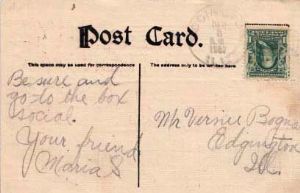 Post Card.
This space may be used for correspondence
The address only to be written here
Be sure and
go to the box
social.
Your friend
Maria S
Mr Vernie Bogue
Edgington
Ill.